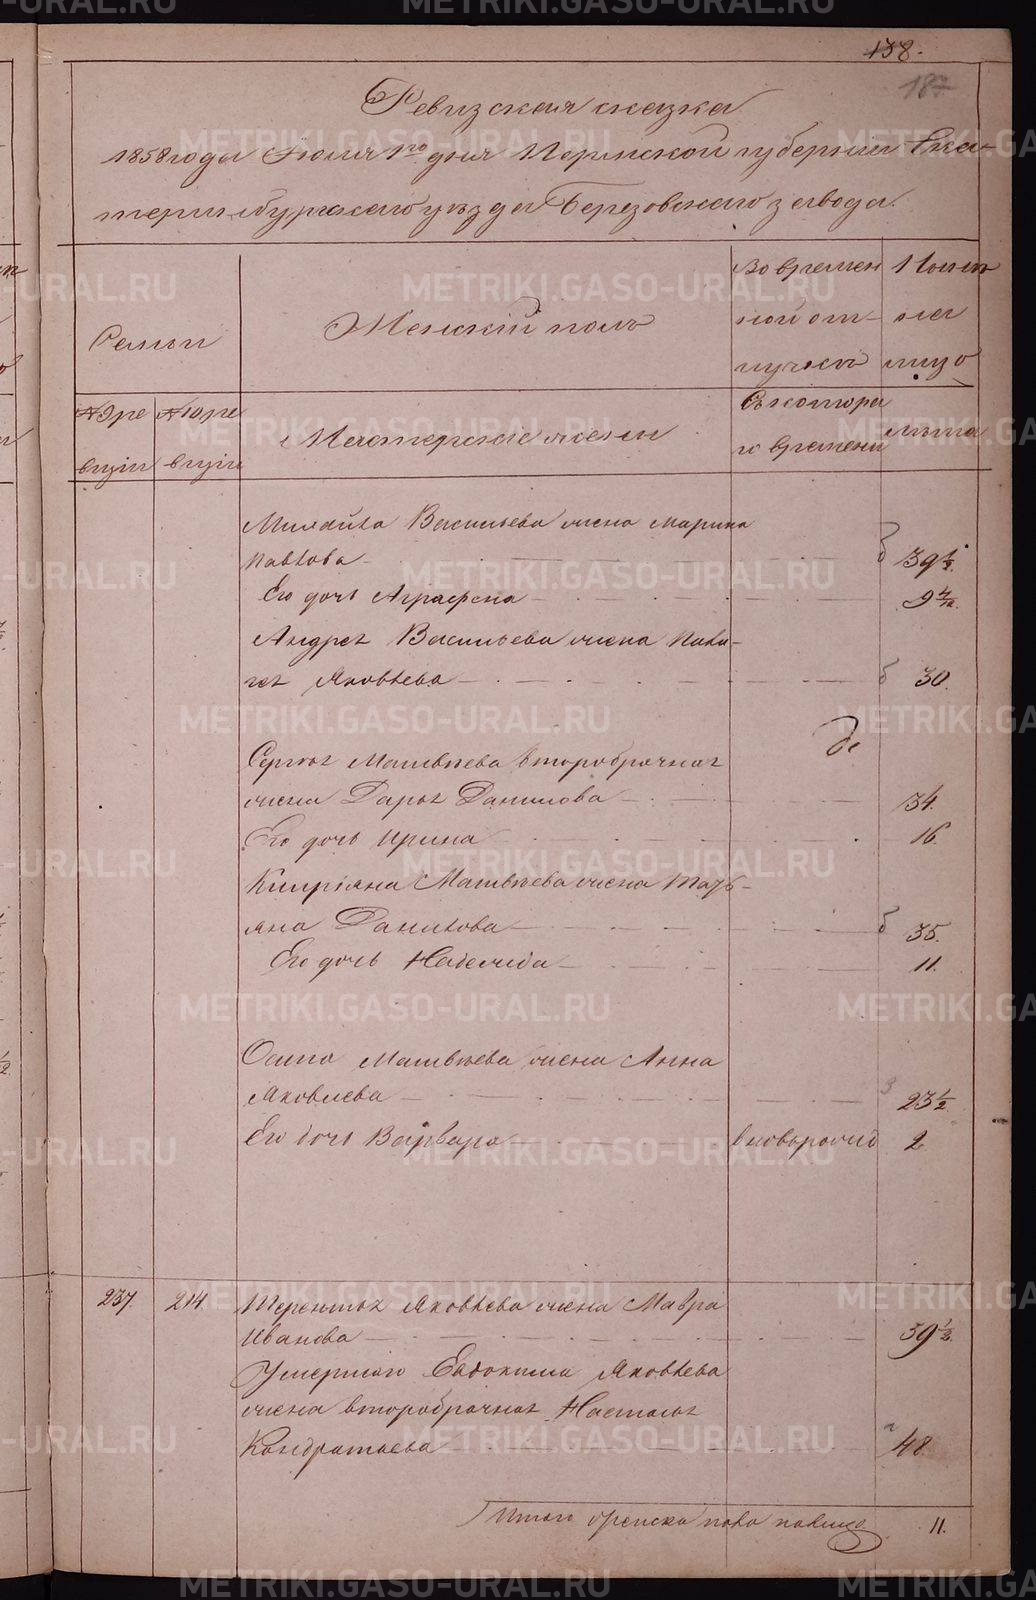 138.
187
Ревизская сказка
1858 года Июля 1го дня Пермской губернии Ека-
теринбургскаго уѣзда Березовскаго завода.
Семьи
Женскій полъ
Во времен
ной от-
лучкѣ
Нынѣ
на
лицо
№ 9 ре
визіи
№ 10 ре
визіи
Мастерскіе жены
Съ котора
го времени
лѣта
Михайла Васильева жена Марина
Павлова 39 1/2.
Его дочь Аграфена 9 4/12.
Андрея Васильева жена Пела-
гея Яковлева 30.
Сергея Матвѣева второбрачная
жена Дарья Данилова 34.
Его дочь Ирина 16.
Кипріяна Матвѣева жена Тать-
яна Данилова 35.
Его дочь Надежда 11.
Осипа Матвѣева жена Анна
Яковлева 23 1/2
Его дочь Варвара вновьрожд 2
237. 214 Терентья Яковлева жена Мавра
Иванова 39 1/2.
Умершаго Евдокима Яковлева
жена второбрачная Настасья
Кондратьева 48
Итого женска пола налицо 11.
METRIKI.GASO-URAL.RU